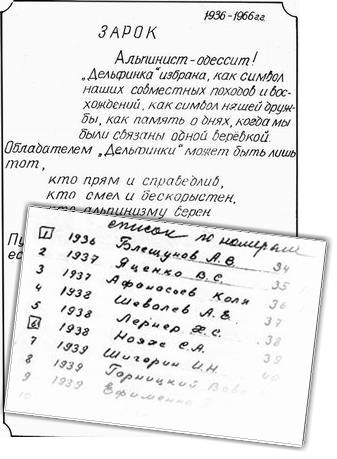 1936-1966 г.г.
ЗАРОК
Альпинист-одессит!
„Дельфинка" избрана, как символ
наших совместных походов и вос-
хождений, как символ нашей друж-
бы, как память о днях, когда мы
были связаны одной верёвкой.
Обладателем „Дельфинки" может быть лишь
тот,
кто прям и справедлив,
кто смел и бескорыстен,
кто альпинизму верен
список по номерам
1 1936 Блещунов А.В. 34
2 1937 Яценко В.С. 35
3 1937 Афанасьев Коля 36
4 1938 Шевалев А.Е. 37
5 1938 Лернер Х.С. 38
6 1938 Нояхс С.А. 39
7 1939 Шигорин И.Н. 40
8 1939 Горницкий
9 1939 Ефименко
10